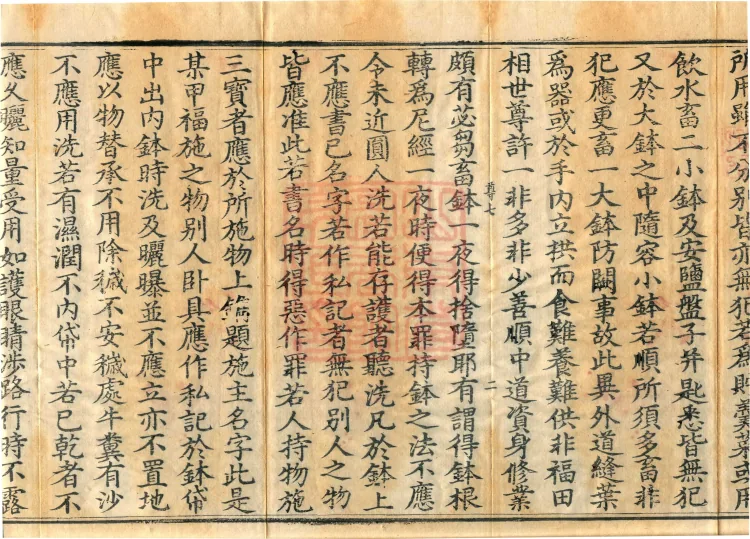 所用雖不分別皆亦無犯若為貯羹菜或用
飲水畜二小鉢及安鹽盤子并匙悉皆無犯
又於大鉢之中隨容小鉢若順所須多畜非
犯應更畜一大鉢防闘事故此異外道縫葉
為器或於手內立拱而食難養難供非福田
相世尊許一非多非少善順中道資身修業
尊七 二
頗有苾芻畜鉢一夜得捨墮耶有謂得鉢根
轉為尼經一夜時便得本罪持鉢之法不應
令未近圓人洗若能存護者聽洗凡於鉢上
不應書已名字若作私記者無犯別人之物
皆應准此若書名時得惡作罪若人持物施
三寶者應於所施物上鐫題施主名字此是
某甲福施之物別人卧具應作私記於鉢帒
中出內鉢時洗及曬曝並不應立亦不置地
應以物替承不用除穢不安穢處牛糞有沙
不應用洗若有濕潤不內帒中若已乾者不
應久曬知量受用如護眼睛涉路行時不露